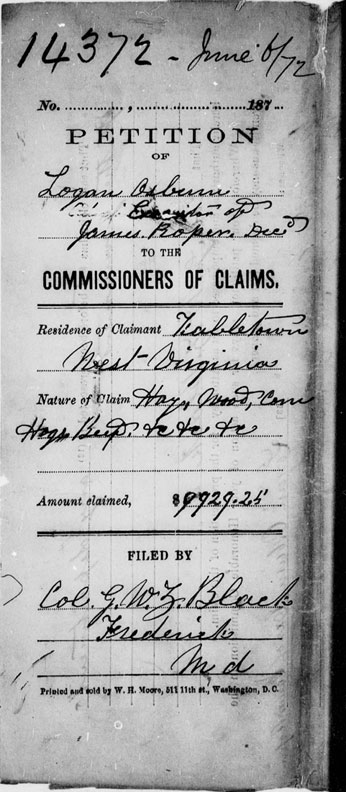 14372 - June 6/72
No. , 187
PETITION
OF
Logan Osburn
Executor of
James Roper. Decd
TO THE
COMMISSIONERS OF CLAIMS.
Residence of Claimant Kabletown
West Virginia
Nature of Claim Hay, Wood, Corn
Hogs, Beef. &c &c &c
Amount claimed, $9929.25
FILED BY
Col. G. W. Z. Black
Frederick
Md
Printed and sold by W. H. Moore, 511 11th st., Washington, D. C.